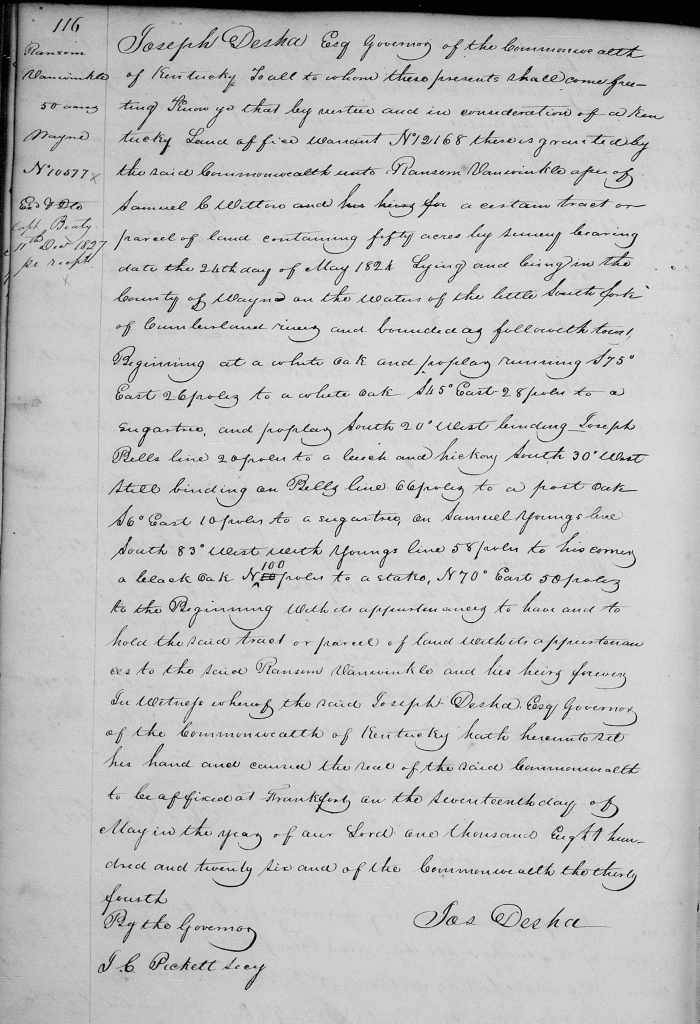 116
Ransom
Vanwinkle
50 acres
Wayne
No 10577 x
Ex & Dd
Capt Beaty
11th Oct 1827
pr recpt
x
Joseph Desha Esq Governor of the Commonwealth
of Kentucky To all to whom these presents shall come gree-
ting Know ye that by vertue and in consideration of a Ken
tucky Land office warrant No 12168 there is granted by
the said Commonwealth unto Ransom Vanwinkle assee of
Samuel C Wittow and his heirs for a certain tract or
parcel of land containing fifty acres by survey bearing
date the 24th day of May 1824 Lying and being in the
County of Wayne on the waters of the little South fork
of Cumberland river and bounded as followeth towit,
Beginning at a white oak and poplar running S75°
East 26 poles to a white oak S45° East 28 poles to a
sugartree, and poplar South 20° West binding Joseph
Bells line 20 poles to a beech and hickory South 30° West
still binding on Bells line 66 poles to a post oak
S6° East 10 poles to a sugartree, on Samuel Youngs line
South 83° West with Youngs line 58 poles to his corner
a black oak N 100 poles to a stake, N70° East 50 poles
to the Beginning with its appurtenances to have and to
hold the said tract or parcel of land with its appurtenan
ces to the said Ransom Vanwinkle and his heirs forever
In witness whereof the said Joseph Desha Esq Governor
of the Commonwealth of Kentucky hath hereunto set
his hand and caused the seal of the said Commonwealth
to be affixed at Frankfort, on the seventeenth day of
May in the year of our Lord one thousand Eight hun-
dred and twenty six and of the Commonwealth the thirty
fourth
Jos Desha
By the Governor
J. C. Pickett Secy